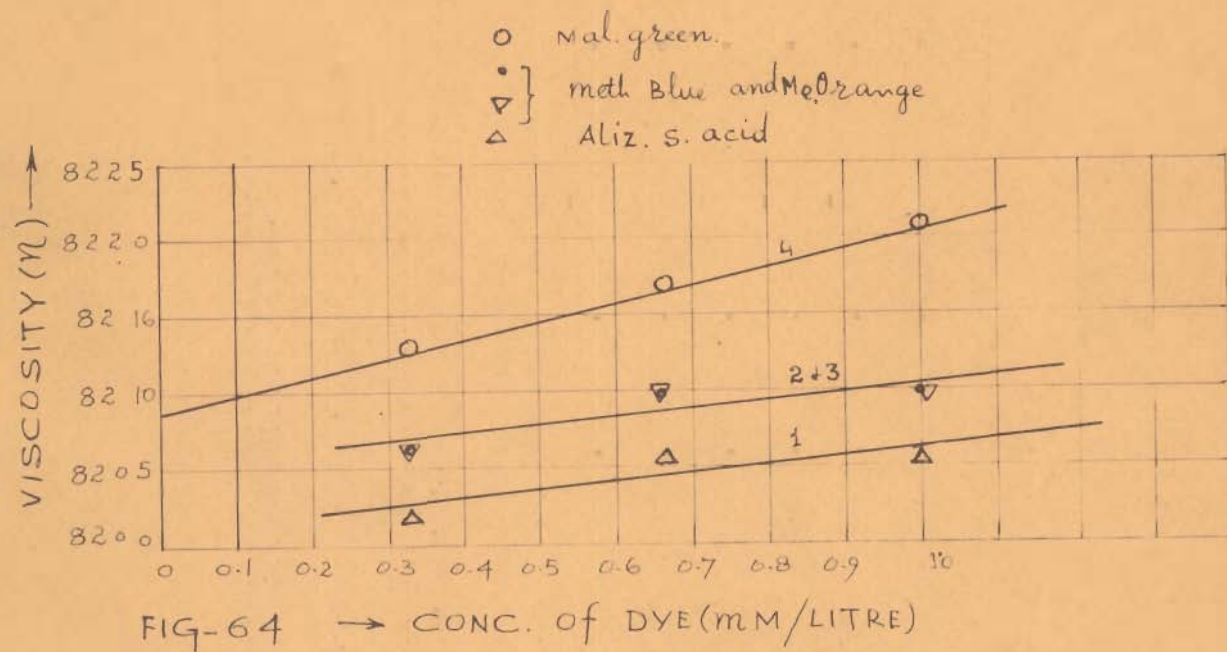 Mal. green.
meth Blue and Me.Orange
Aliz. s. acid
VISCOSITY (η)
8225
8220
8216
8210
8205
8200
4
2+3
1
0 0.1 0.2 0.3 0.4 0.5 0.6 0.7 0.8 0.9 1.0
FIG-64 → CONC. of DYE (mM/LITRE)